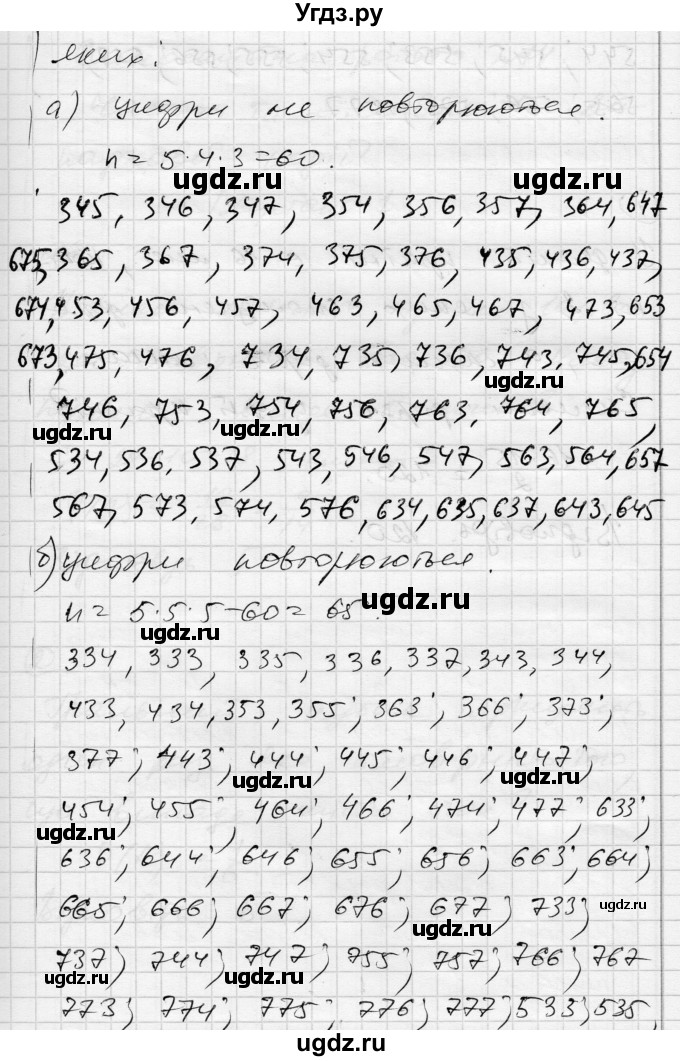 Угдз.ру
яких:
а) цифри не повторюються.
n = 5·4·3 = 60.
ugdz.ru ugdz.ru
345, 346, 347, 354, 356, 357, 364, 647
675, 365, 367, 374, 375, 376, 435, 436, 437,
674, 453, 456, 457, 463, 465, 467, 473, 653
673, 475, 476, 734, 735, 736, 743, 745, 654
ugdz.ru
746, 753, 754, 756, 763, 764, 765,
ugdz.ru ugdz.ru
534, 536, 537, 543, 546, 547, 563, 564, 657
567, 573, 574, 576, 634, 635, 637, 643, 645
б) цифри повторюються.
n = 5·5·5-60 = 65.
ugdz.ru ugdz.ru
334, 333, 335, 336, 337, 343, 344,
433, 434, 353, 355; 363; 366; 373;
377; 443; 444; 445; 446; 447;
ugdz.ru ugdz.ru
454; 455; 464; 466; 474; 477; 633;
ugdz.ru
636; 644; 646; 655; 656; 663; 664;
665; 666; 667; 676; 677; 733;
ugdz.ru ugdz.ru
737; 744; 747; 755; 757; 766; 767
ugdz.ru ugdz.ru
773; 774; 775; 776; 777; 533; 535,
ugdz.ru ugdz.ru